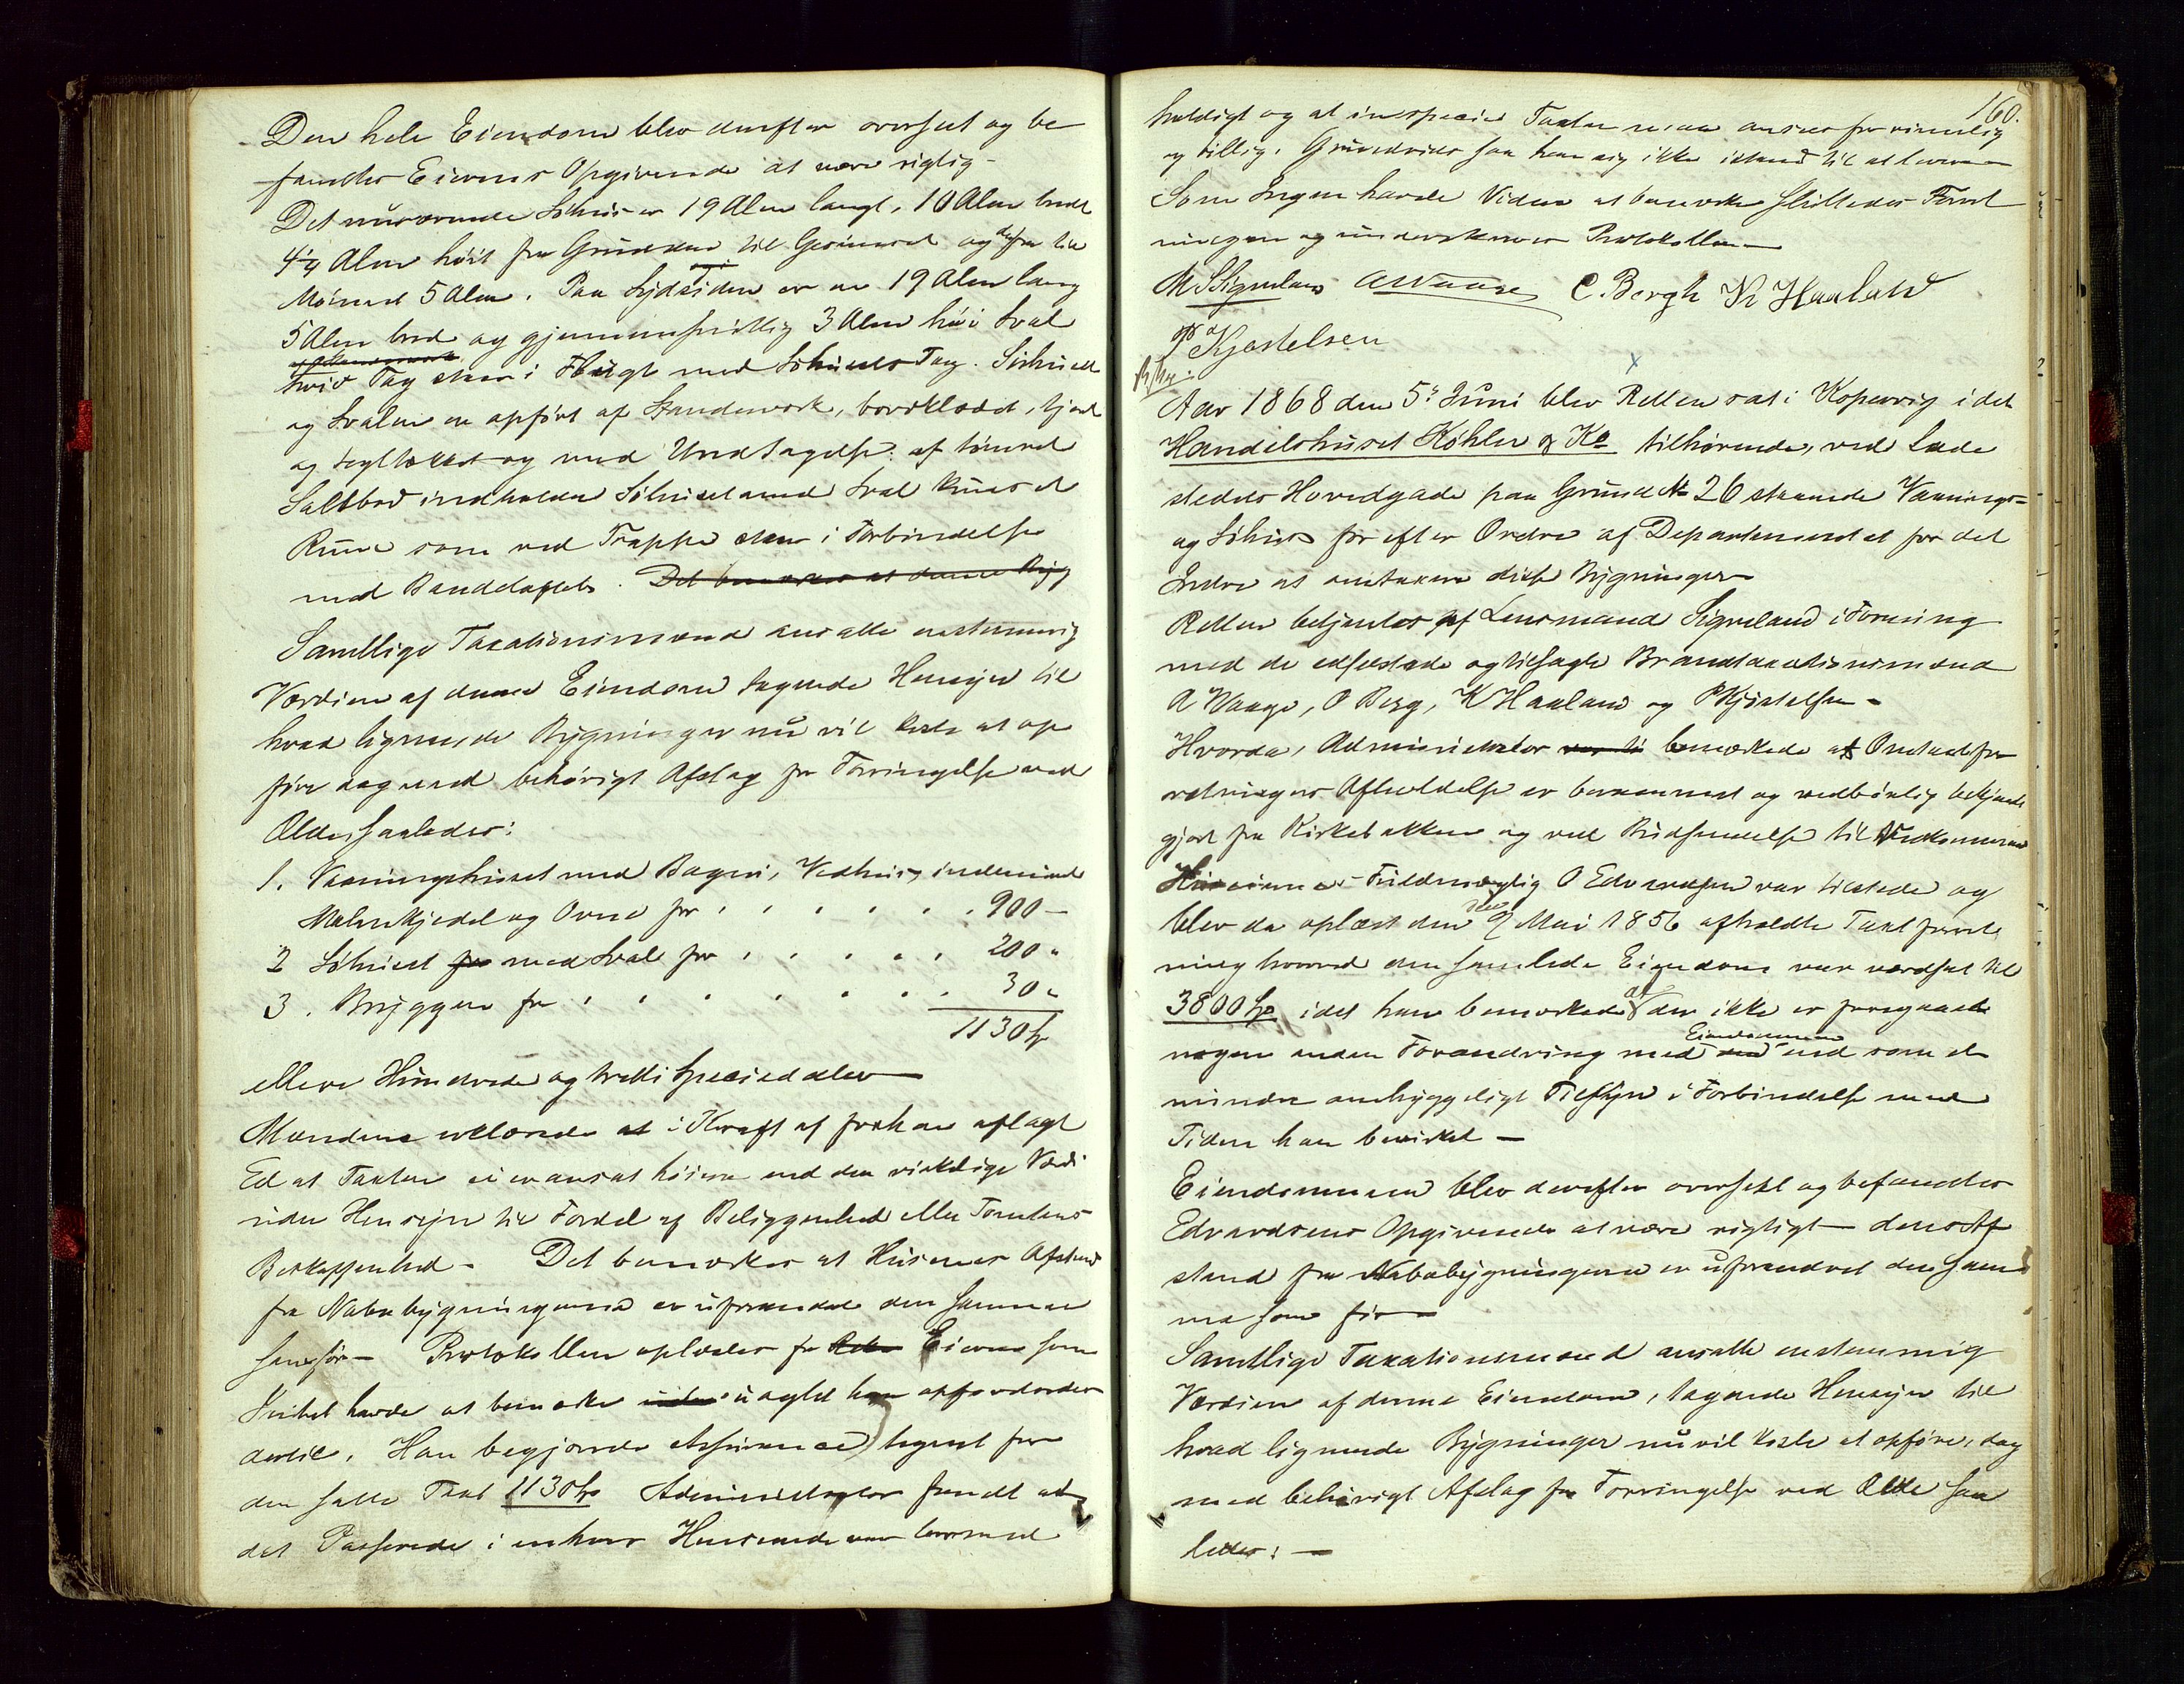 Den hele Eiendom blev derefter overseet og be-
fandtes Eierens Opgivende at være rigtig-
Det nuværende Söhuus er 19 Alen langt, 10 Alen bredt
4¼ Alen höit fra Grunden til Gesimset og derfra til
Mönnet 5 Alen. Paa Sydsiden er en 19 Alen lang
5 Alen bred og gjennemsnitlig 3 Alen höi Sval
hvis Tag staar i Flugt med Söhusets Tag. Söhuset
og Svalen er opfört af Standerværk, bordklædt, tjæret
og tegltækket og med Undtagelse af tömret
Saltbod indeholder Söhuset med Sval kuns et
Rum som ved Trappe staar i Forbindelse
med Bandloftet. Det bemærkes at denne Byg
Samtlige Taxationsmænd ansatte eenstemmig
Værdien af denne Eiendom tagende Hensyn til
hvad lignende Bygninger nu vil koste at op
före dog med behörigt Afslag for Forringelse ved
Ælde, saaledes:
1. Vaaningshuset med Bageri, Vedhuus, indemuret
Malerkjedel og Ovne for . . . . . . 900 -
2 Söhuset for med Sval for . . . . . 200 "
3. Bryggen for . . . . . . . 30 "
1130 Sp
elleve Hundrede og tretti Speciedaler
Mændene erklærede at i Kraft af forhen aflagt
Ed at Taxten ei er ansat höiere end den virkelige Værdi
uden Hensyn til Fordel af Beliggenhed eller Tomtens
Beskaffenhed - Det bemærkes at Husenes Afstand
fra Nabobygningerne er uforandret den samme
som för - Protokollen oplæstes for Eieren som
Intet havde at bemærke uagtet han opfordredes
dertil. Han begjærede Assurance tegnet for
den satte Taxt 1130 Sp Administrator fandt at
det Passerede i enhver Henseende var lovmed
160.
holdigt og at in specie Taxten maa ansees for rimelig
og billig. Grundrids saa han sig ikke istand til at levere
Som Ingen havde Videre at bemærke sluttedes Forret
ningen og underskrives Protokollen
M S Signeland A Waage C. Bergh Kr Haaland
P Kjostelsen
Aar 1868 den 5te Juni blev Retten sat i Kopervig i det
Handelshuset Köhler & Ko tilhörende, ved Lade
stedets Hovedgade paa Grund No 26 staaende Vaanings-
og Söhus for efter Ordre af Departementet for det
Indre at omtaxere disse Bygninger
Retten betjentes af Lensmand Signeland i Forening
med de edfæstede og tilsagte Brandtaxationsmænd
A Waage, C Berg, K Haaland og P Kjöstelsen -
Hvorda, Administrator var ti bemærkede at Omtaxtfor
retningens Afholdelse er berammet og vedbörlig bekjendt
gjort fra Kirkebakken og ved Budsendelse til Vedkommende
Huseierne Fuldmægtig O Edvardsen var tilstede og
blev da oplæst den den 9 Mai 1856 afholdte Taxtforret
ning hvorved den samlede Eiendom var værdsat til
3800 Sp idet han bemærkede at der ikke er foregaaet
nogen anden Forandring med Eiendommen end som et
mindre omhyggeligt Tilsyn i Forbindelse med
Tiden har bevirket -
Eiendommen blev derefter overseet og befandtes
Edvardsens Opgivende at være rigtigt - dens Af
stand fra Nabobygningerne er uforandret den sam
me som för -
Samtlige Taxationsmænd ansatte eenstemmig
Værdien af denne Eiendom, tagende Hensyn til
hvad lignende Bygninger nu vil koste at opföre, dog
med behörigt Afslag for Forringelse ved Ælde saa
ledes: -